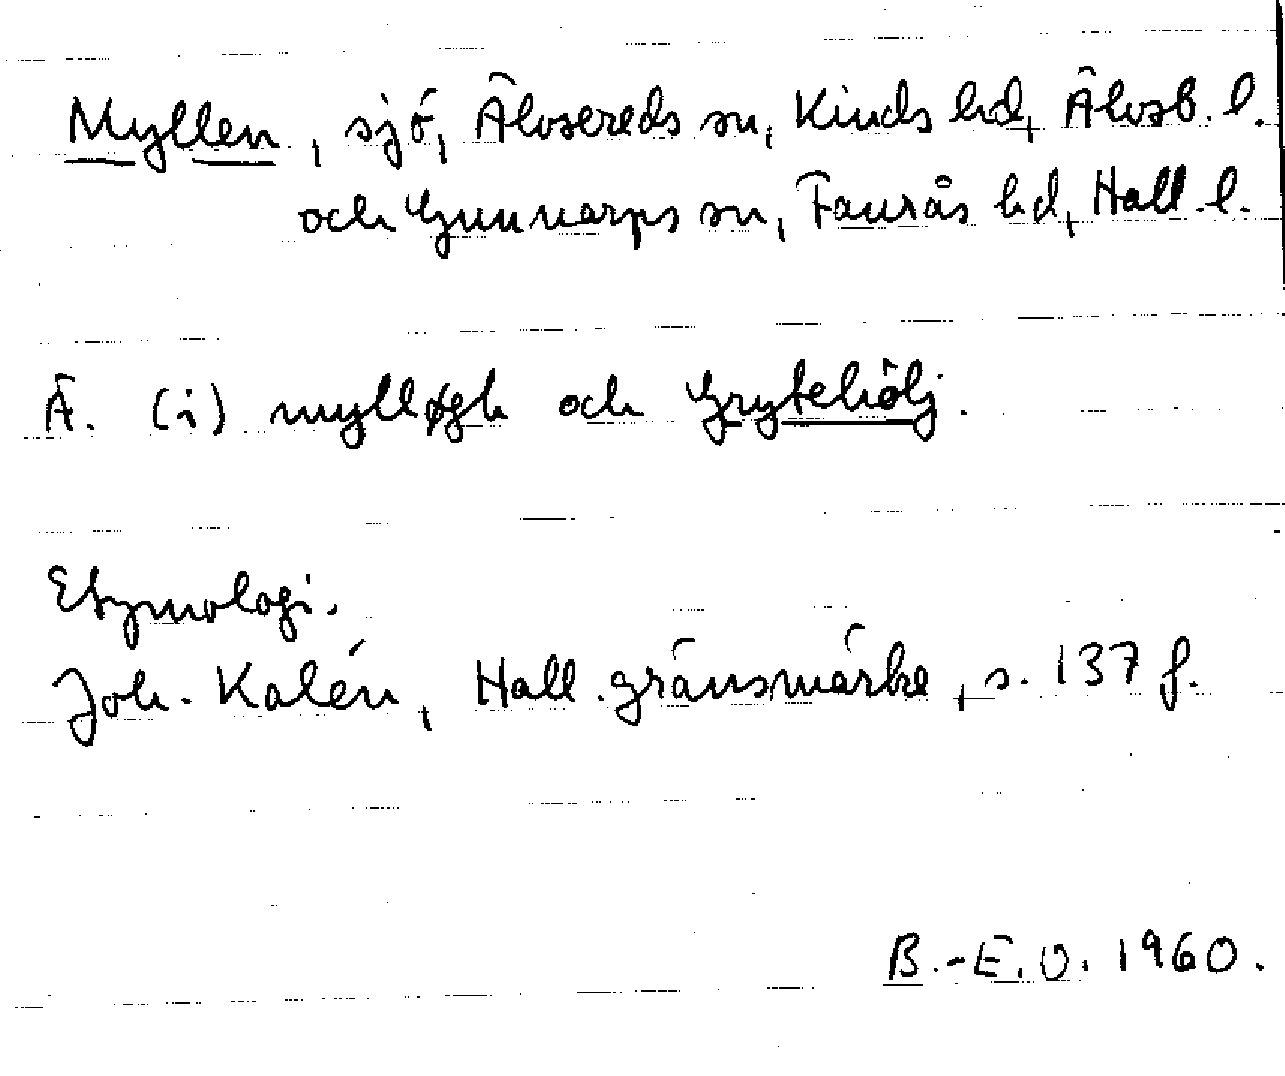 Myllen, sjö, Älvsereds sn, Kinds hd, Älvsb. l.
och Gunnarps sn, Faurås hd, Hall. l.
Ä. (i) mylløgh och Grytehölj.
Etymologi.
Joh. Kalén, Hall. gränsmärke, s. 137 f.
B.-E. O. 1960.